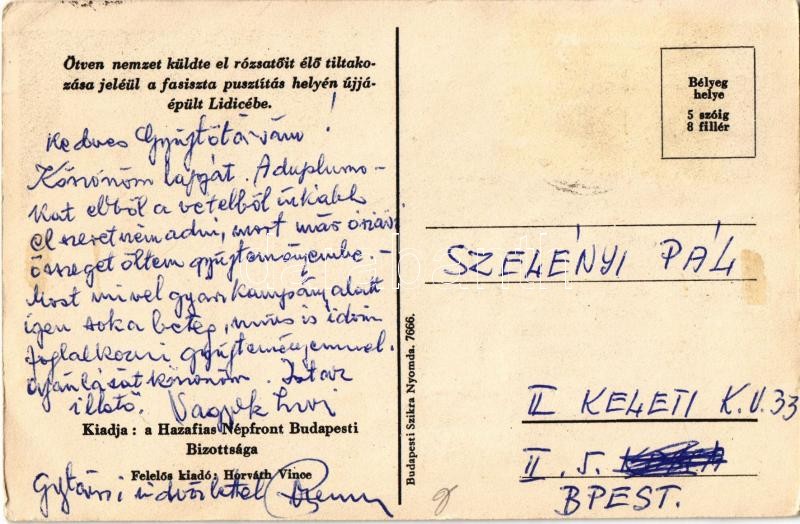 Ötven nemzet küldte el rózsatőit élő tiltako-
zása jeléül a fasiszta pusztítás helyén újjá-
épült Lidicébe.
Kedves Gyűjtőtársam!
Köszönöm lapját. A duplumo-
kat ebből a vételből inkább
el szeretném adni, mert más óriási
összeget öltem gyűjteményembe. -
Most mivel gyors kampány alatt
igen sok a beteg, nincs is időm
foglalkozni gyűjteményemmel.
ajánlását köszönöm.
illető. Vagyok
Kiadja: a Hazafias Népfront Budapesti
Bizottsága
Felelős kiadó: Horváth Vince
Gyűjtői üdvözlettel
Budapesti Szikra Nyomda. 7666.
Bélyeg
helye
5 szóig
8 fillér
SZELÉNYI PÁL
II KELETI K. U. 33
II. 5.
BPEST.